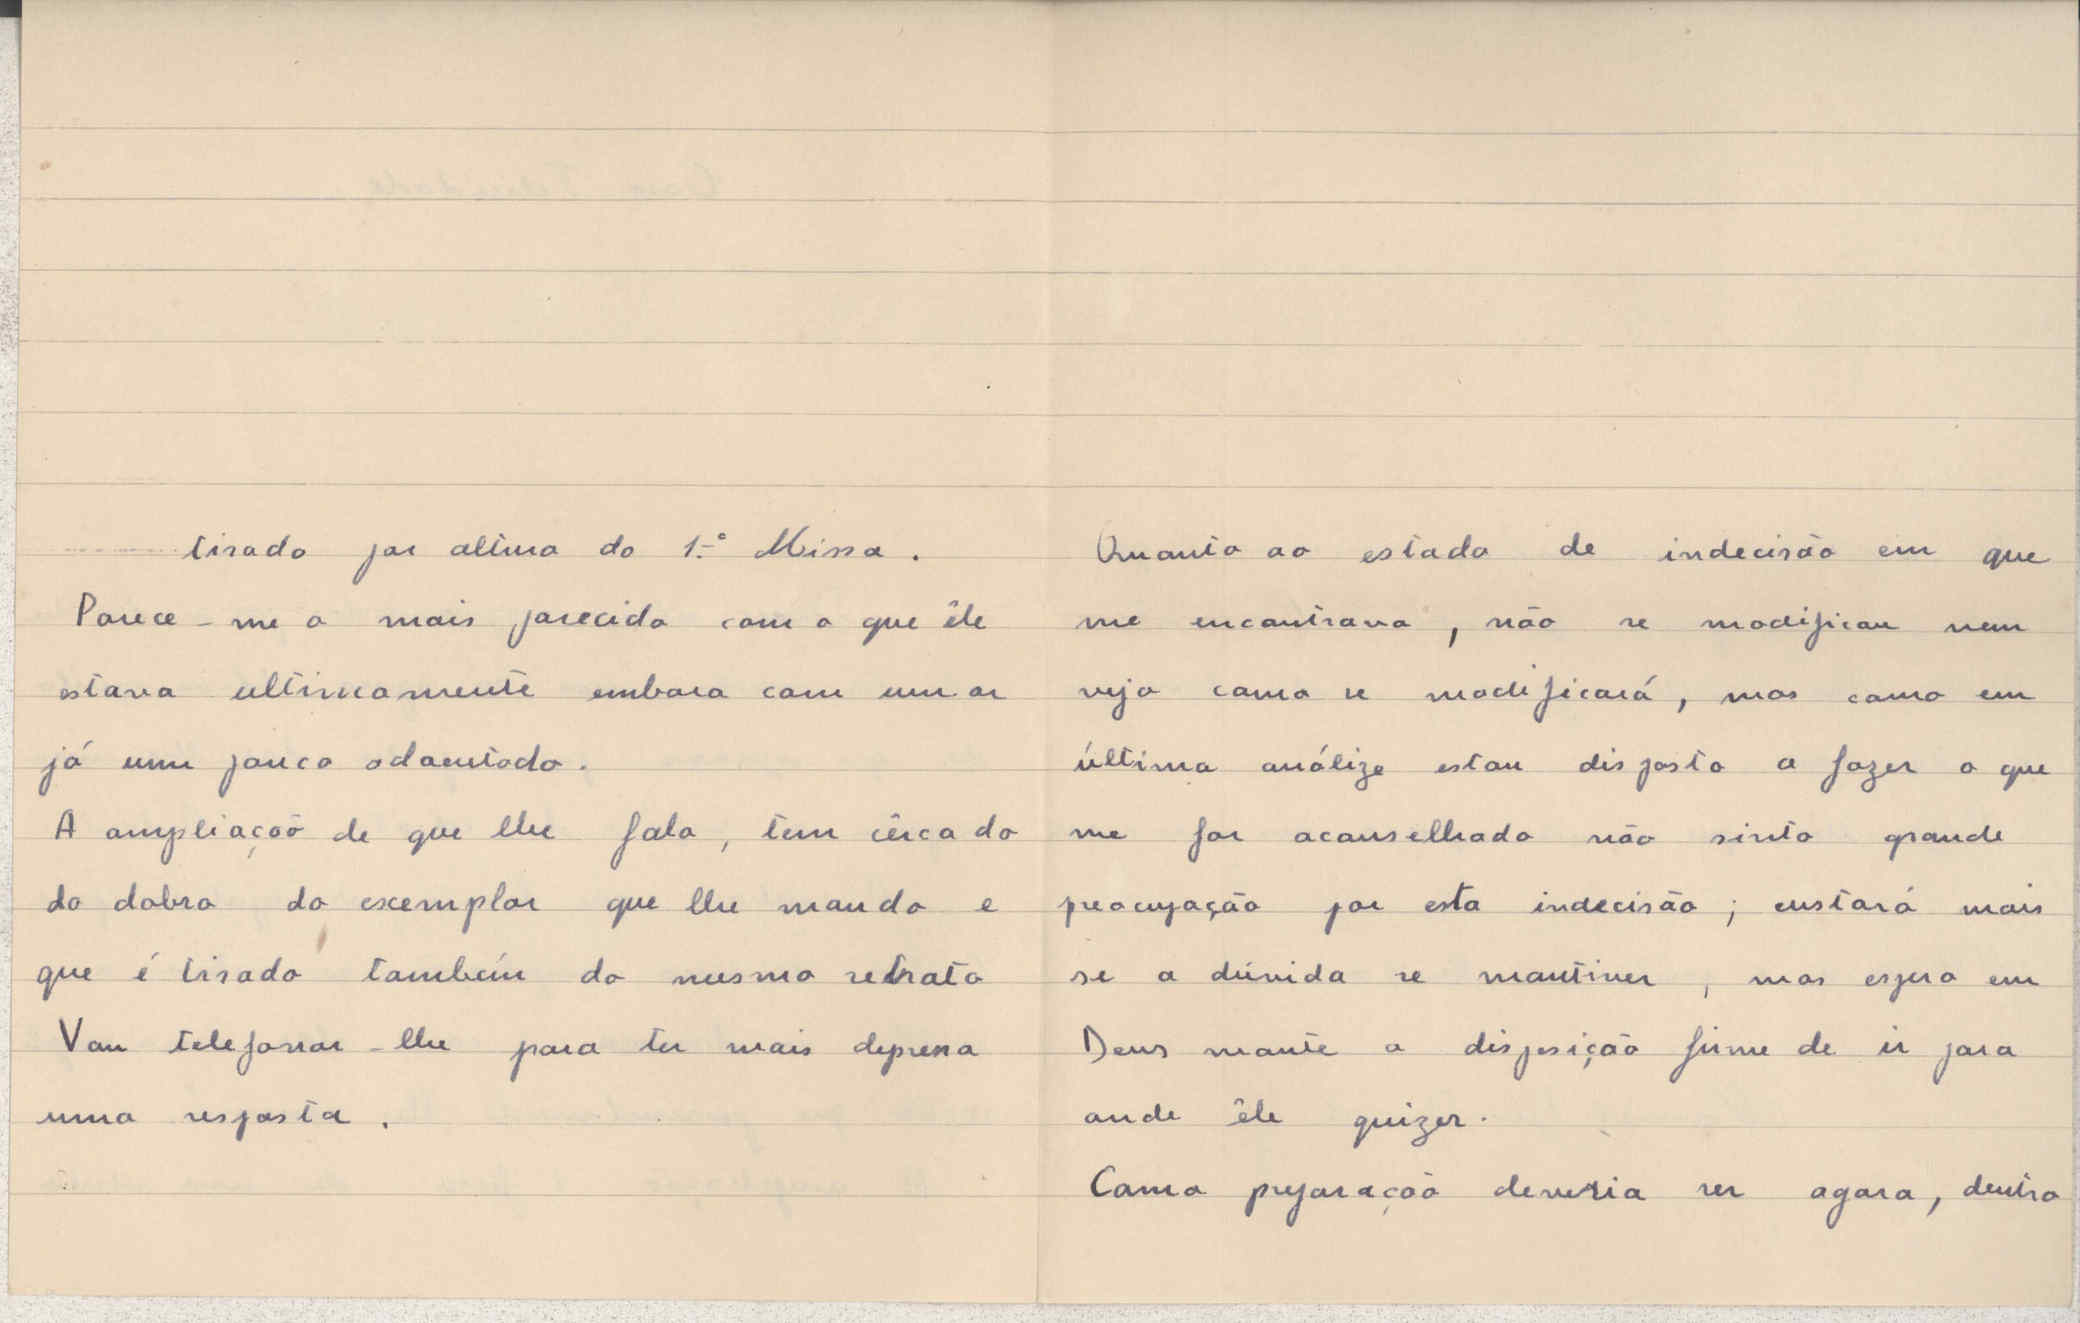 tirado por altura da 1.ª Missa.
Parece-me o mais parecido com o que êle
estava ultimamente embora com um ar
já um pouco adoentado.
A ampliação de que lhe falo, tem cêrca do
do dobro do exemplar que lhe mando e
que é tirado também do mesmo retrato
Vou telefonar-lhe para ter mais depressa
uma resposta.
Quanto ao estado de indecisão em que
me encontrava, não se modificou nem
vejo como se modificará, mas como em
última análize estou disposto a fazer o que
me for aconselhado não sinto grande
preocupação por esta indecisão; custará mais
se a dúvida se mantiver, mas espero em
Deus mante a disposição firme de ir para
onde êle quizer.
Como preparação deveria ser agora, dentro